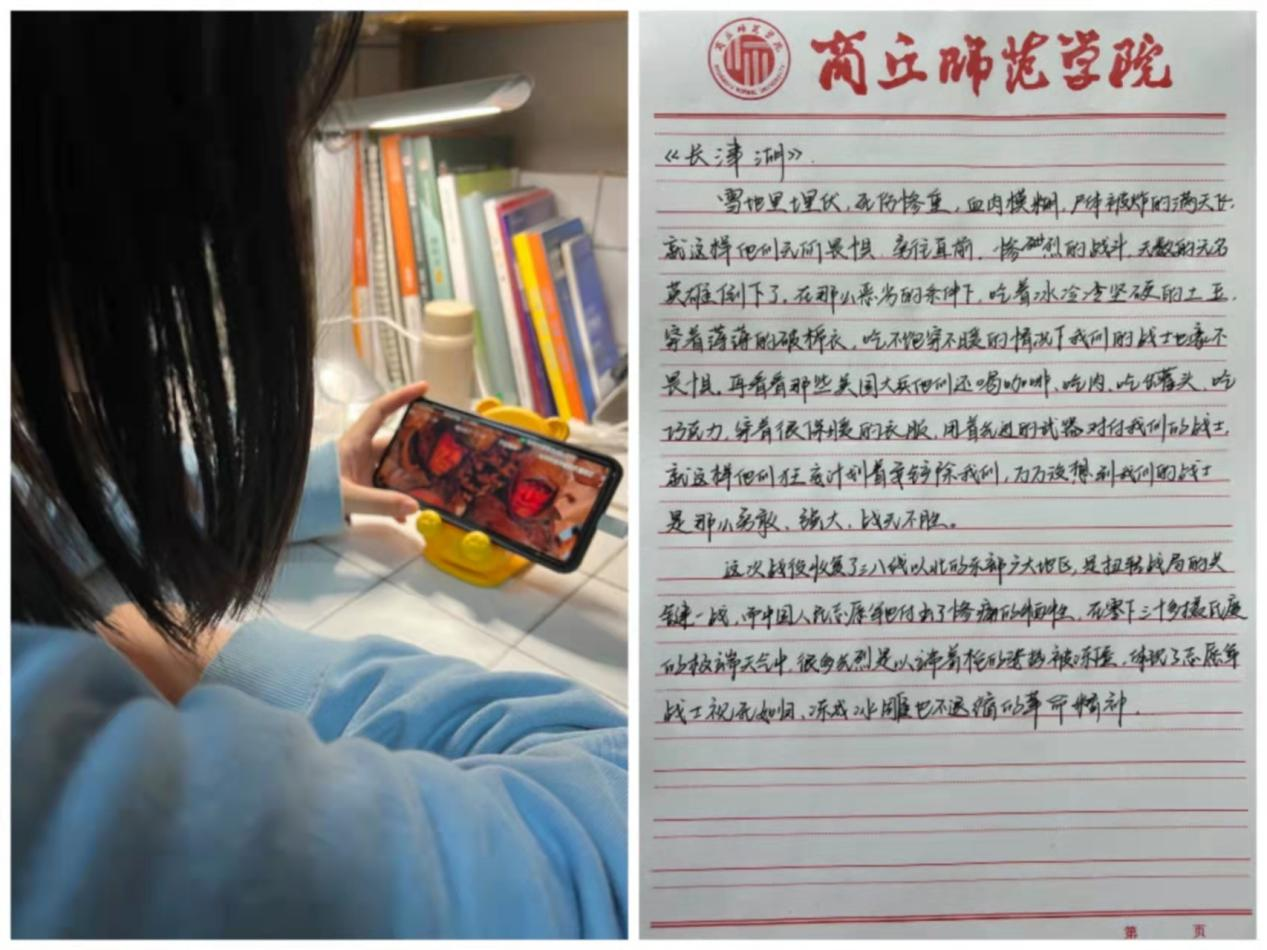 商丘师范学院
《长津湖》
雪地里埋伏,死伤惨重,血肉模糊,尸体被炸的满天飞
就这样他们无所畏惧,勇往直前,惨烈的战斗,无数的无名
英雄倒下了,在那么恶劣的条件下,吃着冰冷冷坚硬的土豆,
穿着薄薄的破棉衣,吃不饱穿不暖的情况下我们的战士也毫不
畏惧,再看看那些美国大兵他们还喝咖啡、吃肉、吃罐头、吃
巧克力,穿着很保暖的衣服,用着先进的武器对付我们的战士,
就这样他们狂妄计划着要铲除我们,万万没想到我们的战士
是那么勇敢、强大、战无不胜。
这次战役收复了三八线以北的东部广大地区,是扭转战局的关
键一战,而中国人民志愿军也付出了惨痛的牺牲,在零下三十多摄氏度
的极端天气中,很多先烈是以端着枪的姿势被冻僵,体现了志愿军
战士视死如归、冻成冰雕也不退缩的革命精神.
第 页